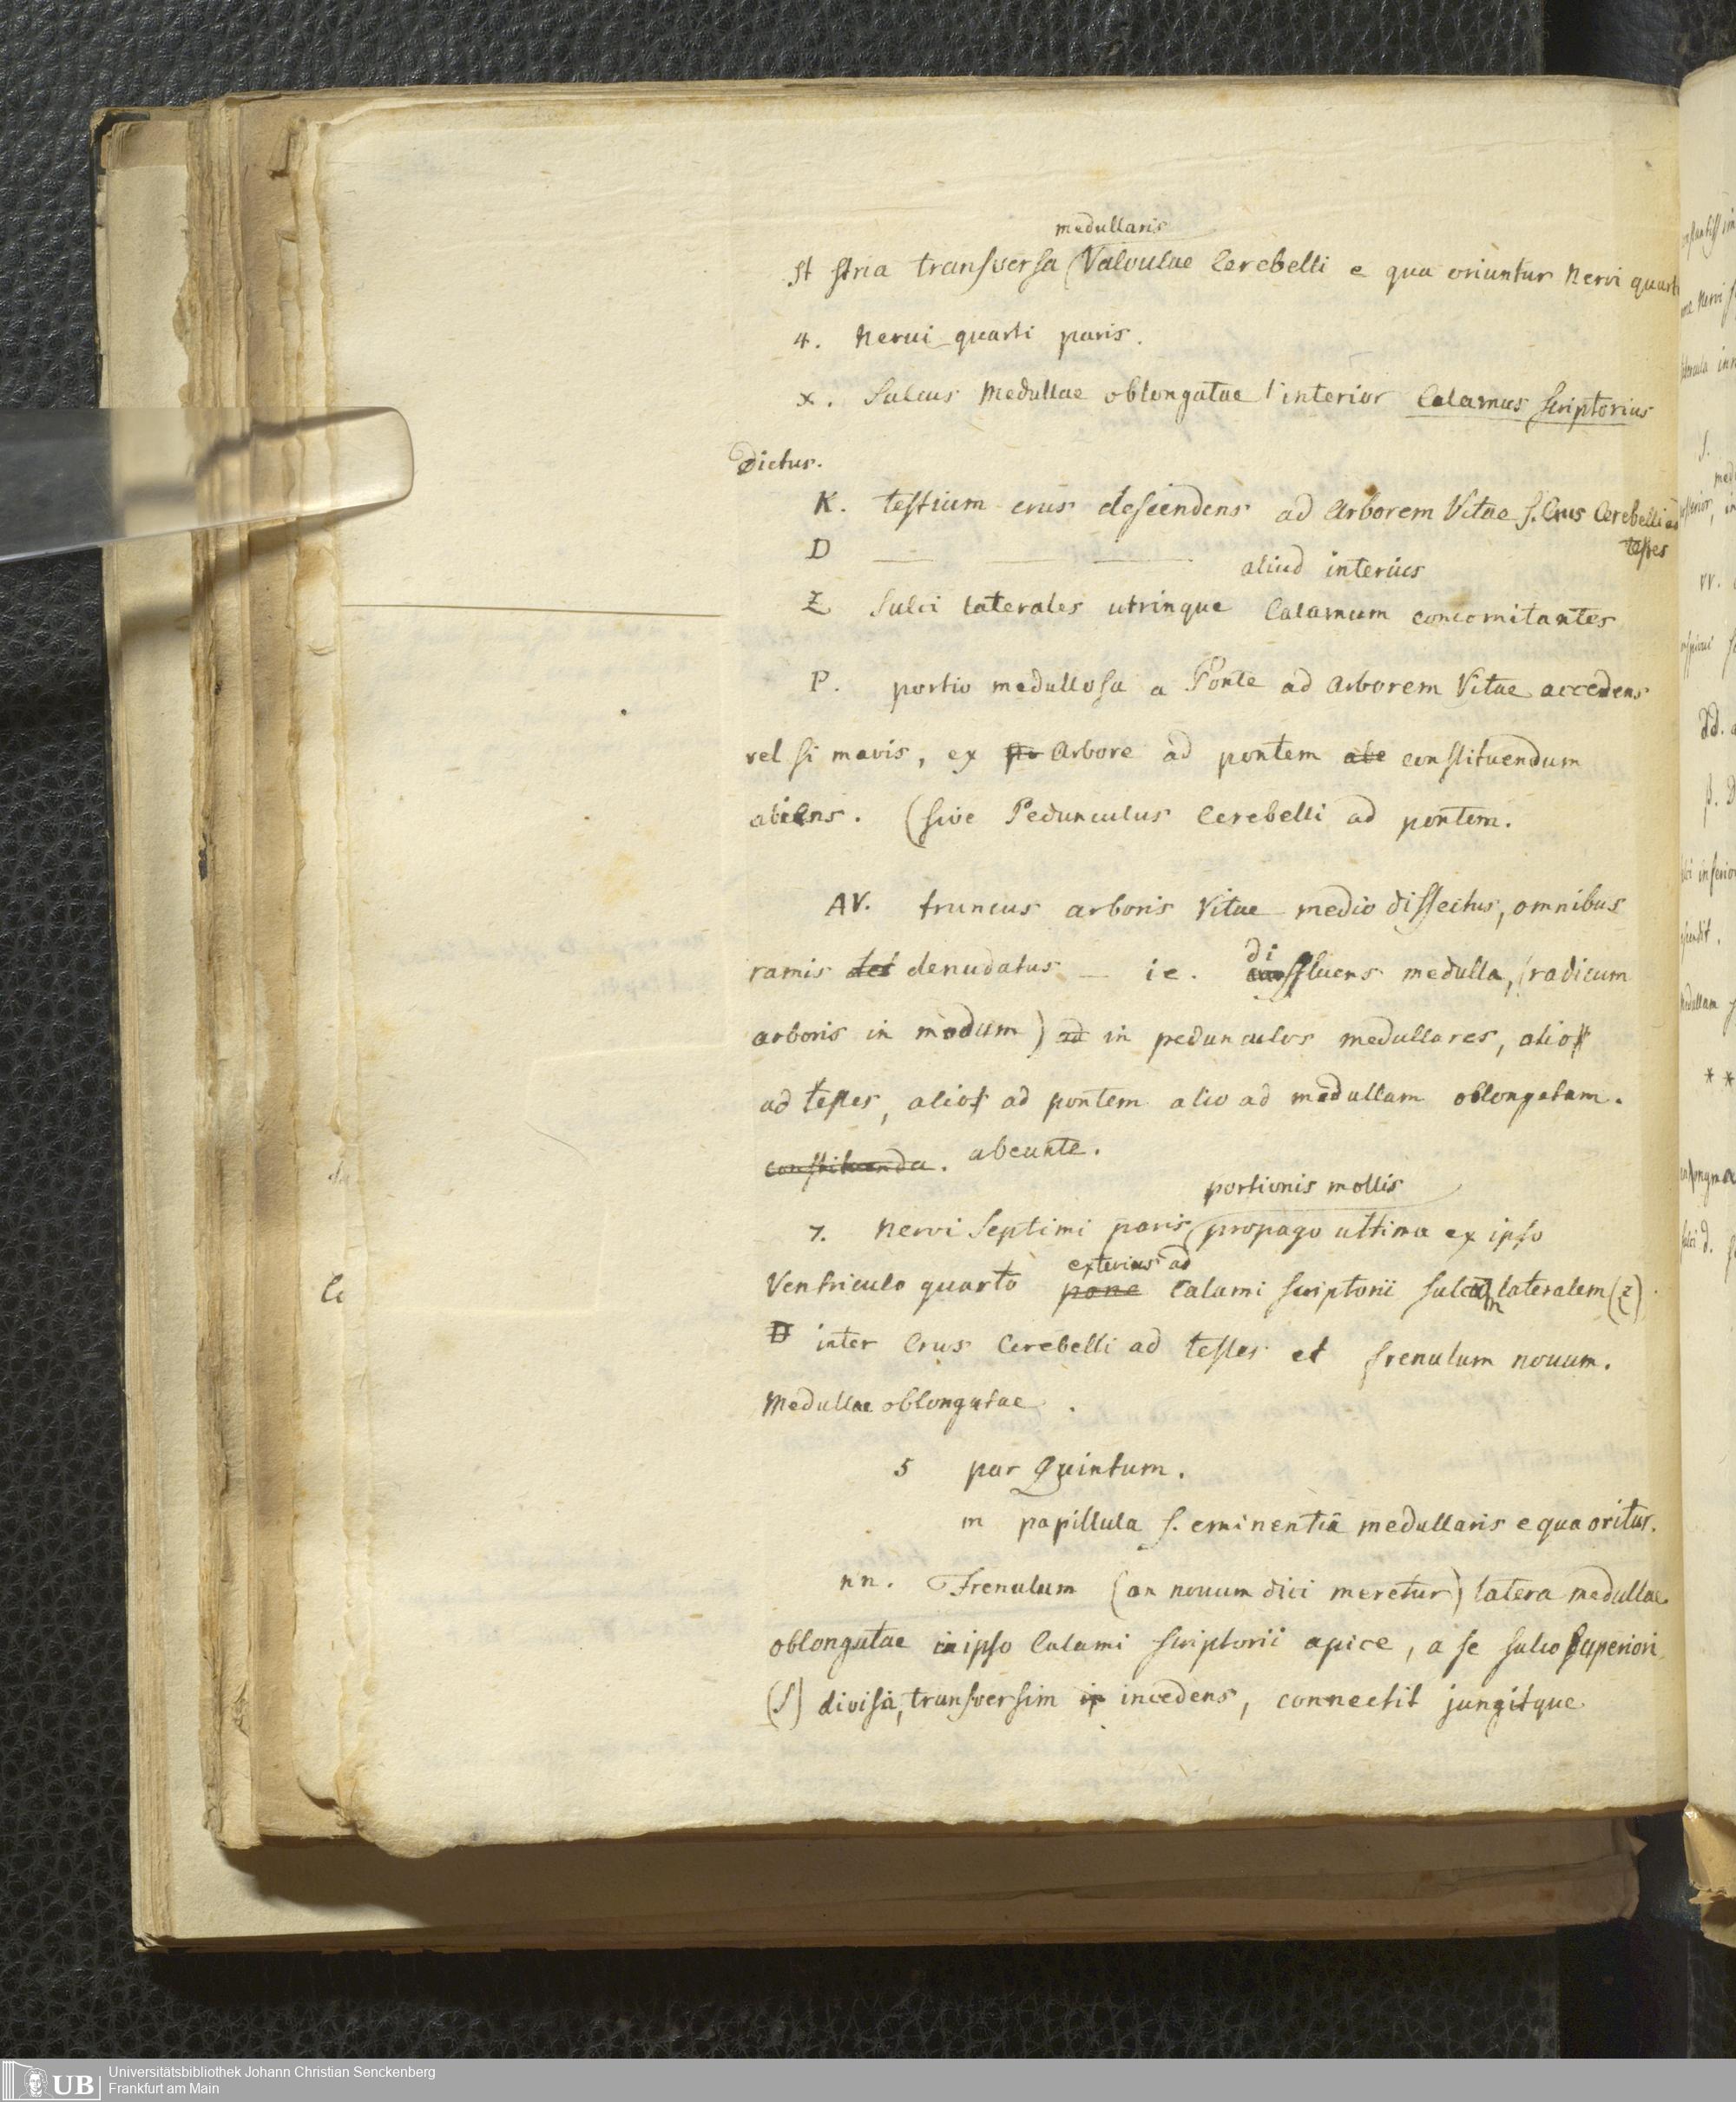 medullaris
st stria transversa (Valvulae Cerebelli e qua oriuntur Nervi quarti
4. Nervi quarti paris.
x. Sulcus Medullae oblongatae interior Calamus scriptorius
dictus.
K. testium crus descendens ad Arborem Vitae s. Crus Cerebelli ad
testes
D — — — aliud interius
Z Sulci laterales utrinque Calamum concomitantes
P. portio medullosa a Ponte ad Arborem Vitae accedens
vel si mavis, ex Arbore ad pontem constituendum
abiens. (sive Pedunculus Cerebelli ad pontem.
AV. truncus arboris Vitae medio dissectus, omnibus
di
ramis denudatus — ie. ffluens medulla, (radicum
arboris in modum) ad in pedunculos medullares, alios
ad testes, alios ad pontem alio ad medullam oblongatam.
constituenda. abeunte.
portionis mollis
7. Nervi Septimi paris (propago ultima ex ipso
exterius ad
Ventriculo quarto pone Calami scriptorii sulcum lateralem (z)
D inter Crus Cerebelli ad testes et frenulum novum.
Medullae oblongatae.
5 par Quintum.
m papillula s. eminentia medullaris e qua oritur.
nn. Frenulum (an novum dici meretur) latera medullae
oblongatae in ipso Calami scriptorii apice, a se sulco superiori
(S) divisa, transversim in incedens, connectit jungitque
Universitätsbibliothek Johann Christian Senckenberg
UB
Frankfurt am Main